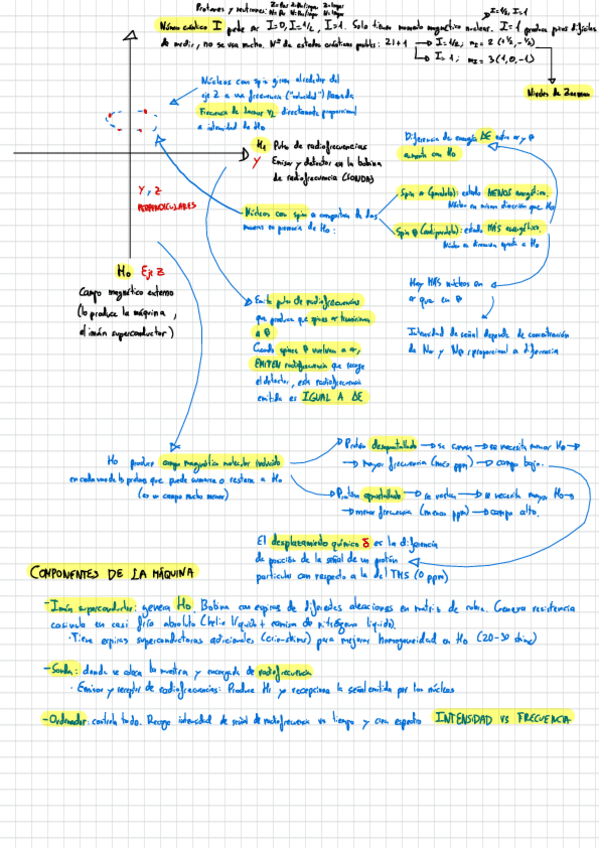 Protones y neutrones:
I=1/2, I=1
Número cuántico I puede ser I=0, I=1/2, I>1. Solo tienen momento magnético nuclear. I=1 produce picos difíciles
de medir, no se usa mucho. Nº de estados cuánticos posibles: 2I+1
I=1/2; m₂=2 (+½, -½)
I=1; m₂=3 (1, 0, -1)
Niveles de Zeeman
Núcleos con spin giran alrededor del
eje Z a una frecuencia ("velocidad") llamada
Frecuencia de Larmor directamente proporcional
a intensidad de H₀
H₁ Pulso de radiofrecuencias
Y Emisor y detector en la bobina
de radiofrecuencia (SONDA)
Y, Z
PERPENDICULARES
Diferencia de energía ΔE entre α y β
aumenta con H₀
Núcleos con spin se comportan de dos
maneras en presencia de H₀:
Spin α (paralelo): estado MENOS energético.
Núcleo en misma dirección que H₀
Spin β (antiparalelo): estado MÁS energético.
Núcleo en dirección opuesta a H₀
H₀ Eje Z
Campo magnético externo
(lo produce la máquina,
el imán superconductor)
Hay MÁS núcleos en
α que en β
Intensidad de señal depende de concentración
de Nα y Nβ; proporcional a diferencia
Emite pulso de radiofrecuencias
que produce que spines α transicionen
a β
Cuando spines β vuelven a α,
EMITEN radiofrecuencia que recoge
el detector, esta radiofrecuencia
emitida es IGUAL A ΔE
H₀ produce campo magnético molecular inducido
en cada uno de los protones que puede sumarse o restarse a H₀
(es un campo mucho menor)
Protón desapantallado → se suman → se necesita menor H₀ →
→ mayor frecuencia (más ppm) → campo bajo.
Protón apantallado → se restan → se necesita mayor H₀ →
→ menor frecuencia (menos ppm) → campo alto.
El desplazamiento químico δ es la diferencia
de posición de la señal de un protón
particular con respecto a la del TMS (0 ppm)
COMPONENTES DE LA MÁQUINA
- Imán superconductor: genera H₀. Bobina con espiras de diferentes aleaciones en matriz de cobre. Genera resistencia
casi nula en casi frío absoluto (helio líquido + camisa de nitrógeno líquido).
· Tiene espiras superconductoras adicionales (crio-shims) para mejorar homogeneidad en H₀ (20-30 shims)
- Sonda: donde se coloca la muestra y encargada de radiofrecuencia
· Emisor y receptor de radiofrecuencias: Produce H₁ y recepciona la señal emitida por los núcleos
- Ordenador: controla todo. Recoge intensidad de señal de radiofrecuencia vs tiempo y crea espectro INTENSIDAD VS FRECUENCIA